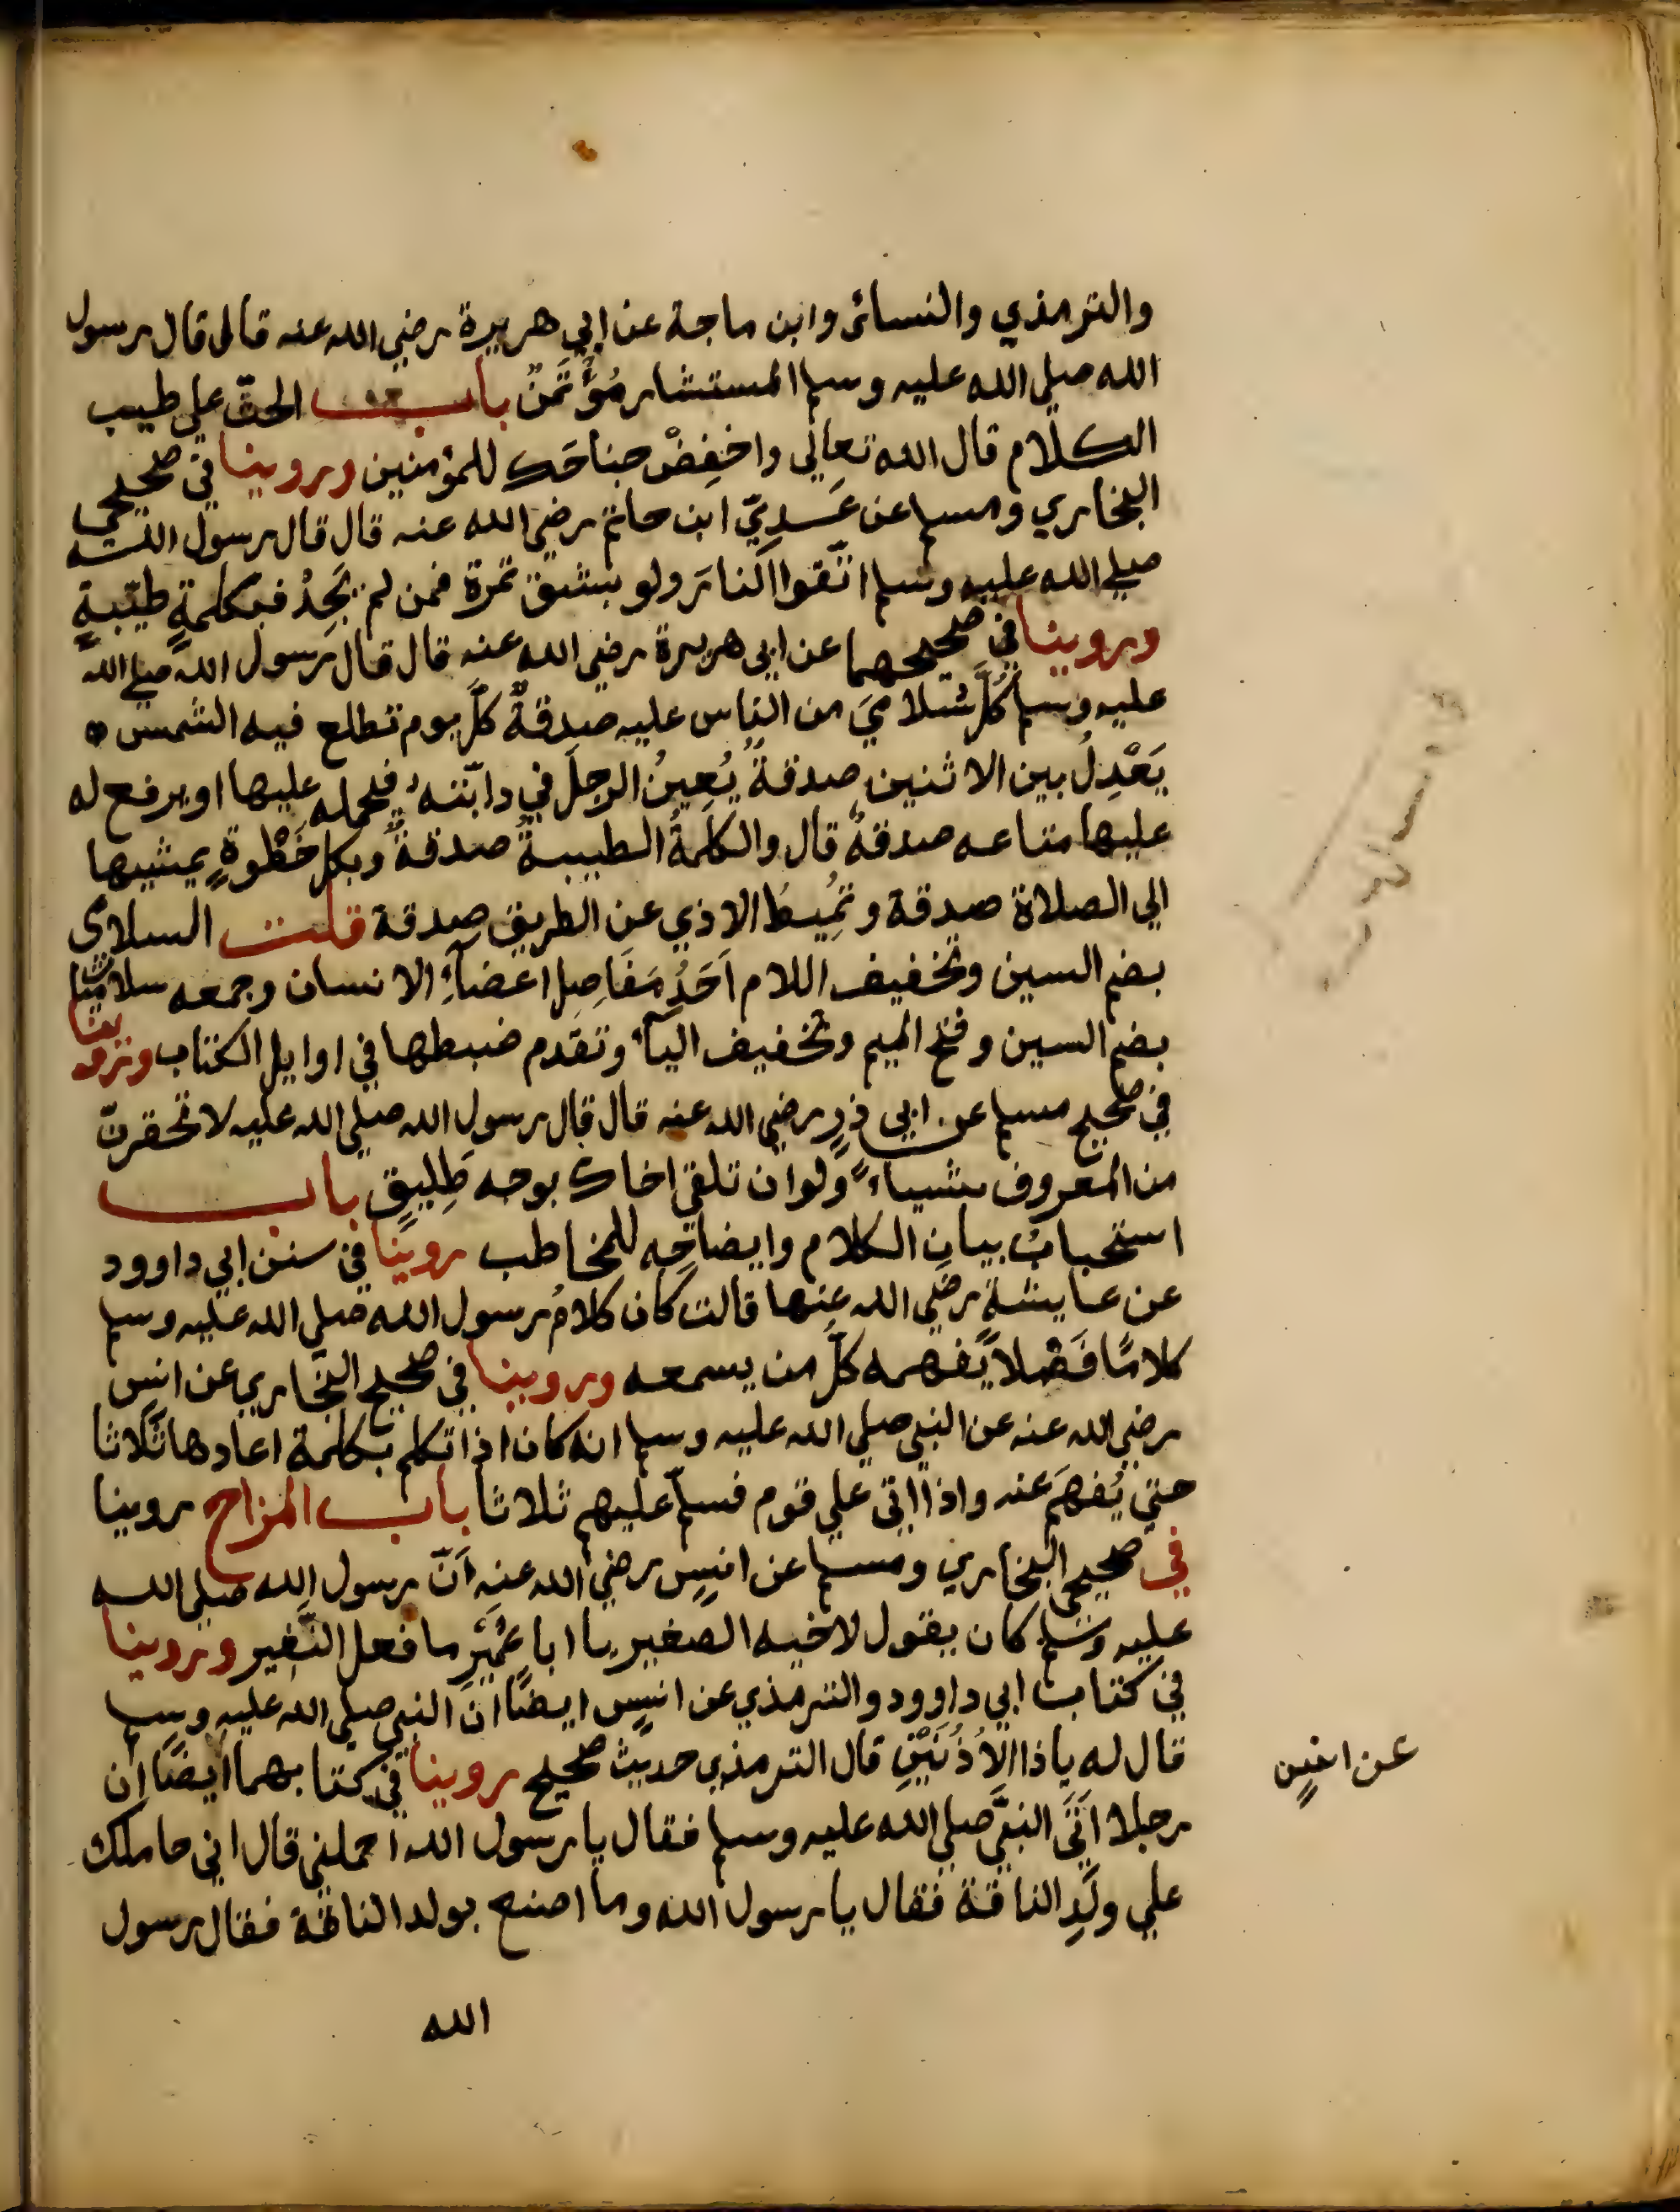 والترمذي والنسائى وابن ماجة عن ابي هريرة رضي الله عنه قال قال رسول
الله صلي الله عليه وسلم المستشار مُؤْتَمَنٌ باب الحثّ علي طيب
الكلام قال الله تعالي واخفِضْ جناحَك للمؤمنين وروينا في صحيحي
البخاري ومسلم عن عَدِيّ ابن حاتم رضي الله عنه قال قال رسول الله
صلي الله عليه وسلم اتّقوا النارَ ولو بشق تمرة فمن لم يَجِدْ فبكلمةٍ طيّبةٍ
وروينا في صحيحهما عن ابي هريرة رضي الله عنه قال قال رسول الله صلي الله
عليه وسلم كلّ سُلاميَ من الناس عليه صدقةٌ كلّ يوم تطلع فيه الشمس
يَعْدِلُ بين الاثنين صدقةٌ يُعِينُ الرجلَ في دابّته فيحمله عليها او يرفع له
عليها متاعه صدقةٌ قال والكلمةُ الطيبةُ صدقةٌ وبكل خَطْوةٍ يمشيها
الي الصلاة صدقة وتُمِيطُ الاذي عن الطريق صدقة قلت السلامى
بضم السين وتخفيف اللام اَحَدُ مَفَاصِلِ اعضآءِ الانسان وجمعه سلاميات
بضم السين وفتح الميم وتخفيف اليآء وتقدم ضبطها في اوايل الكتاب وروينا
في صحيح مسلم عن ابي ذرٍ رضي الله عنه قال قال رسول الله صلي الله عليه لا تحقرنّ
من المعروف شيياءً ولو ان تلقي اخاك بوجه طَلِيقٍ باب
استحبابُ بيانِ الكلام وايضاحِه للمخاطب روينا في سنن ابي داوود
عن عايشة رضي الله عنها قالت كان كلامُ رسول الله صلي الله عليه وسلم
كلامًا فَصْلاً يَفهمه كلّ من يسمعه وروينا في صحيح البخاري عن انس
رضي الله عنه عن النبي صلي الله عليه وسلم انه كان اذا تكلم بكلمة اعادها ثلاثا
حتي يُفهَمَ عنه واذا اتى علي قوم فسلّم عليهم ثلاثا باب المزاح روينا
في صحيحي البخاري ومسلم عن انسٍ رضي الله عنه اَنّ رسول الله صلي الله
عليه وسلم كان يقول لاخيه الصغير يا ابا عُمَيْرِ ما فعل النُّغير وروينا
في كتاب ابي داوود والترمذي عن انسٍ ايضًا ان النبي صلي الله عليه وسلم
قال له ياذا الاُذُنَيْنِ قال الترمذي حديث صحيح روينا في كتابهما ايضًا ان
عن انسٍ
رجلا اَتَى النبيَّ صلي الله عليه وسلم فقال يا رسول الله احملني قال اني حاملك
علي ولَدِ الناقة فقال يا رسول الله وما اصنع بولد الناقة فقال رسول
الله